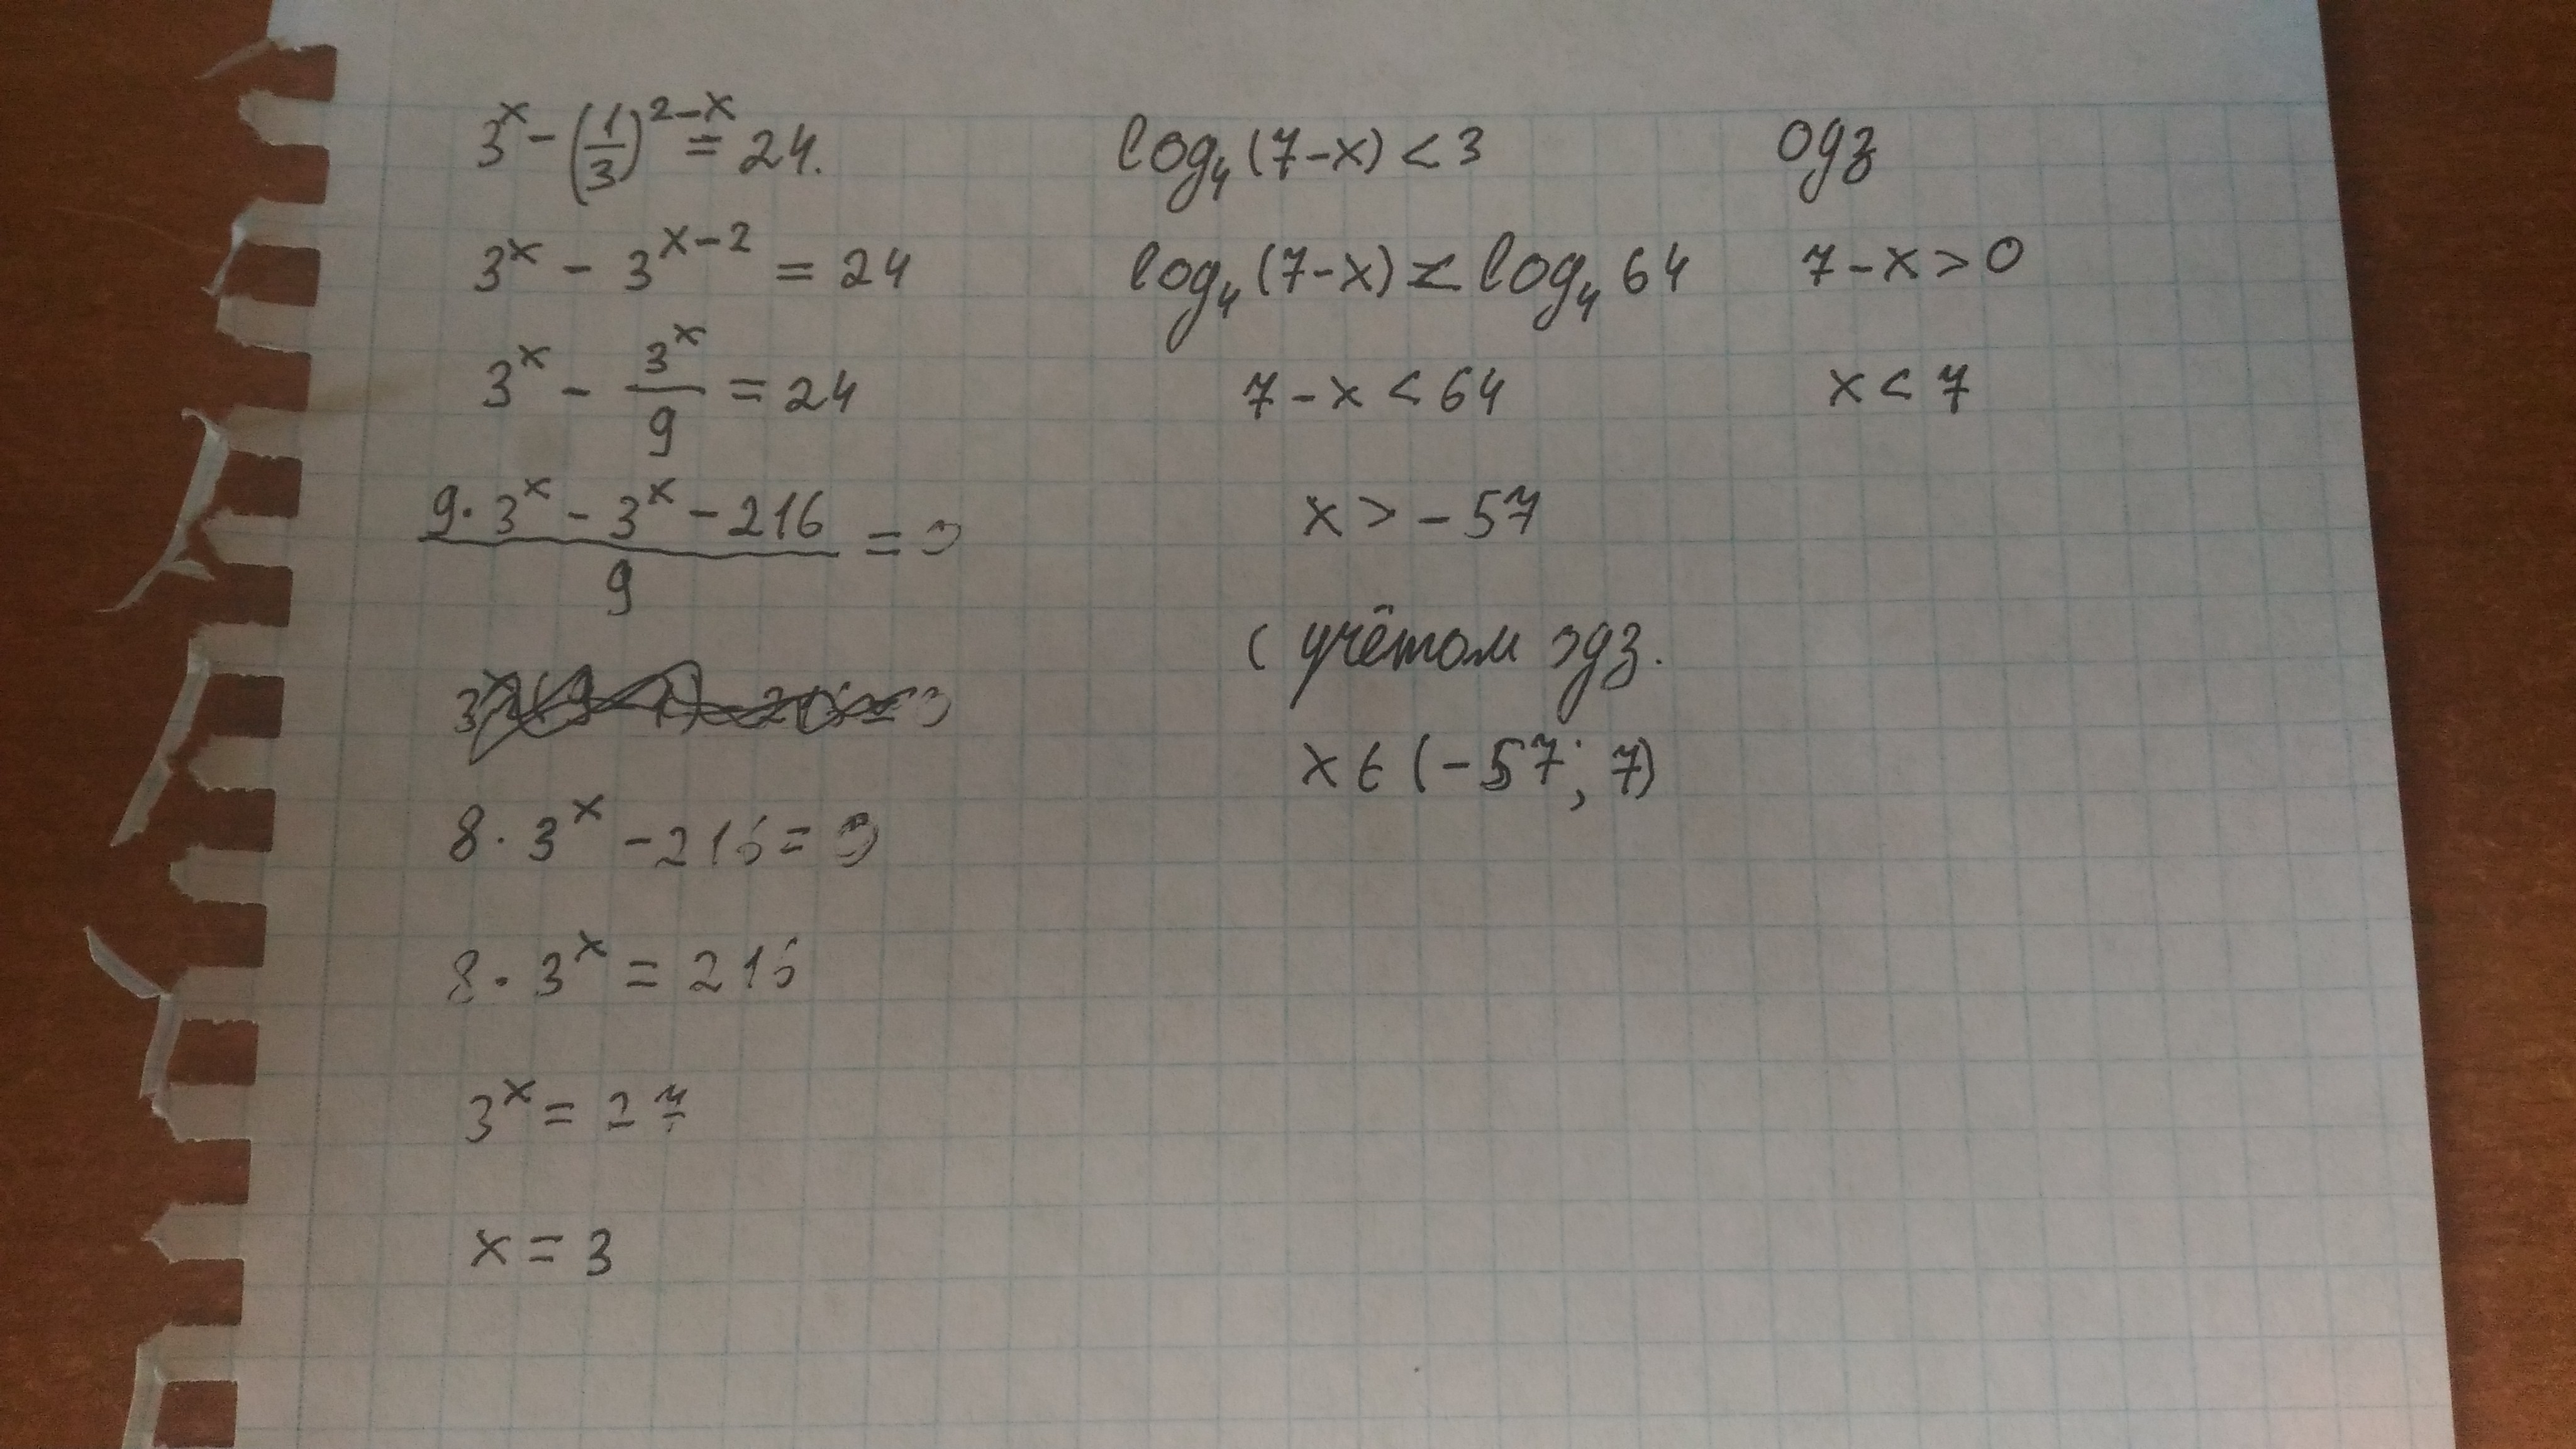 3^x - (1/3)^(2-x) = 24.
3^x - 3^(x-2) = 24
3^x - 3^x/9 = 24
(9·3^x - 3^x - 216)/9 = 0
8·3^x - 216 = 0
8·3^x = 216
3^x = 27
x = 3
log₄(7-x) < 3
log₄(7-x) < log₄ 64
7-x < 64
x > -57
с учётом одз.
x ∈ (-57; 7)
одз
7-x > 0
x < 7